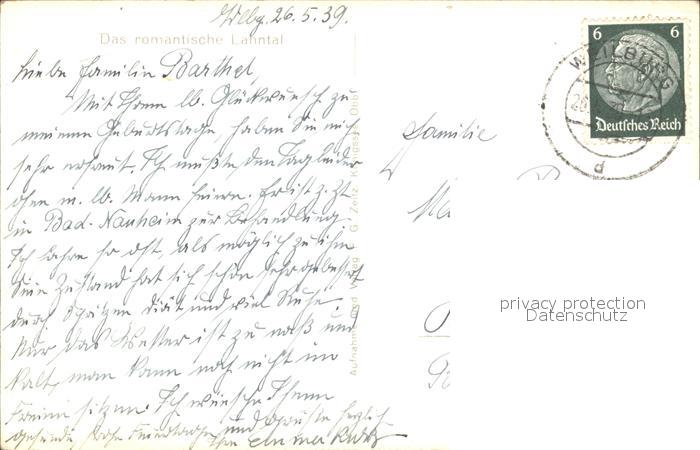 Wlbg. 26.5.39.
Das romantische Lahntal
Liebe Familie Barthel,
Mit Ihrem lb. Glückwunsch zu
meinem Geburtstage, haben Sie mich
sehr erfreut. Ich mußte den Tag leider
ohne m. lb. Mann feiern. Er ist z. Zt.
in Bad-Nauheim zur Behandlung.
Ich fahre so oft, als möglich zu ihm
Sein Zustand hat sich schon sehr gebessert
durch Spritzen, diät und viel Ruhe.
Nur das Wetter ist zu naß und
kalt, man kann noch nicht im
Freien sitzen. Ich wünsche Ihnen
gesunde, frohe Feiertage und Grüße herzlich
Ihre Emma
Aufnahme und Verlag G. Zeitz, Königsee
Familie
6 6
Deutsches Reich
WEILBURG
d
privacy protection
Datenschutz